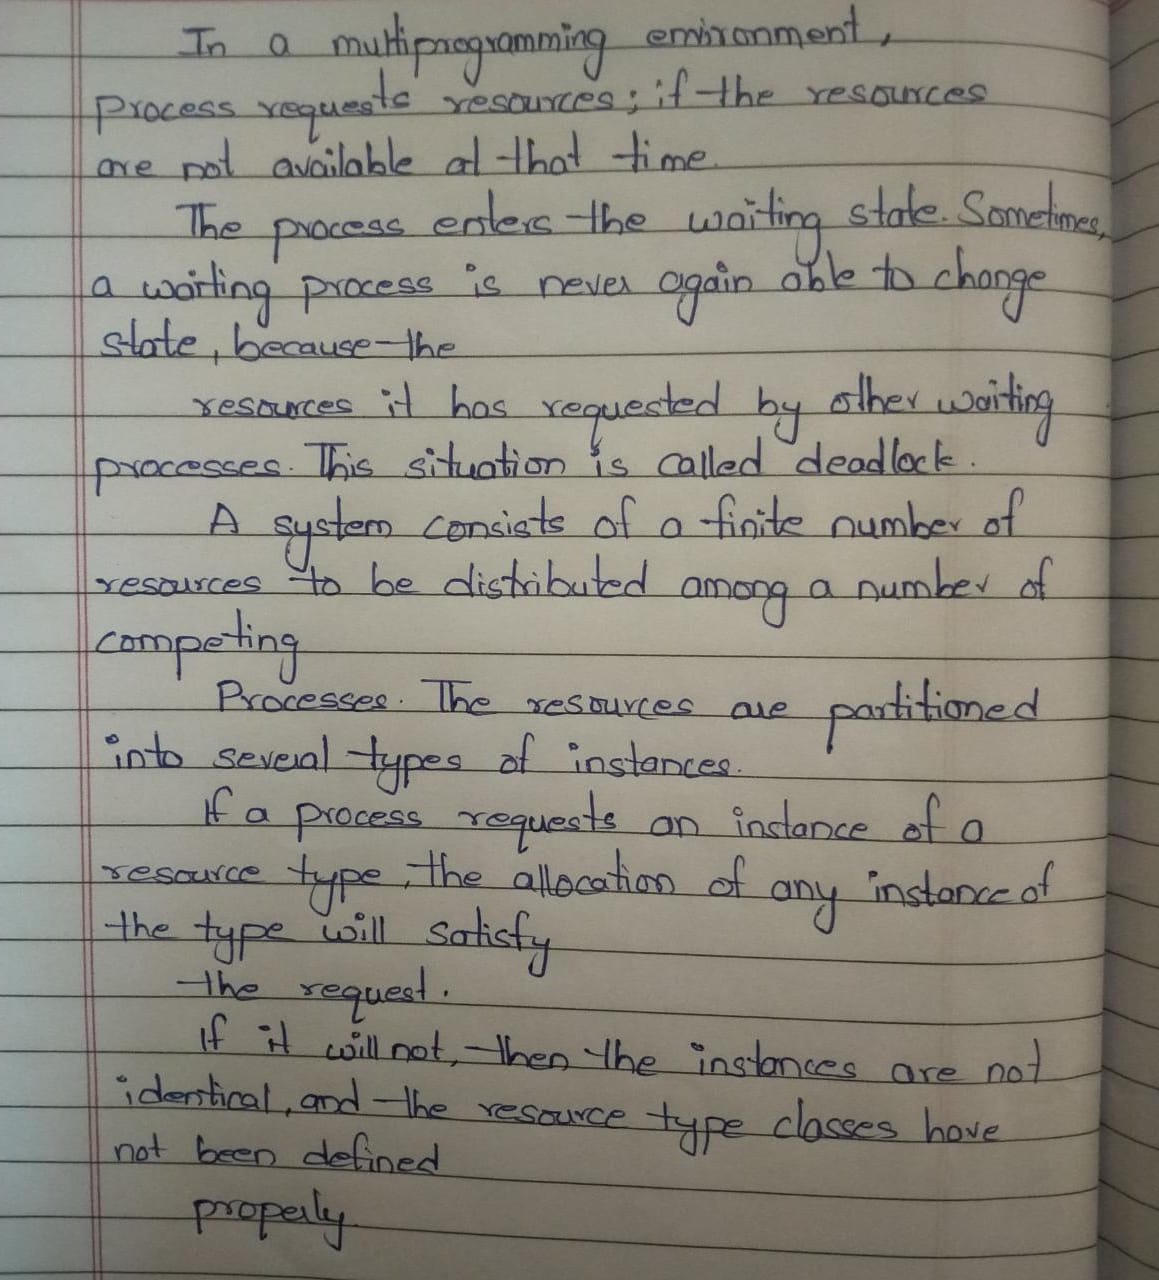 In a multiprogramming environment,
process requests resources; if the resources
are not available at that time.
The process enters the waiting state. Sometimes,
a waiting process is never again able to change
state, because the
resources it has requested by other waiting
processes. This situation is called deadlock.
A system consists of a finite number of
resources to be distributed among a number of
competing
Processes. The resources are partitioned
into several types of instances.
If a process requests an instance of a
resource type, the allocation of any instance of
the type will satisfy
the request.
If it will not, then the instances are not
identical, and the resource type classes have
not been defined
properly